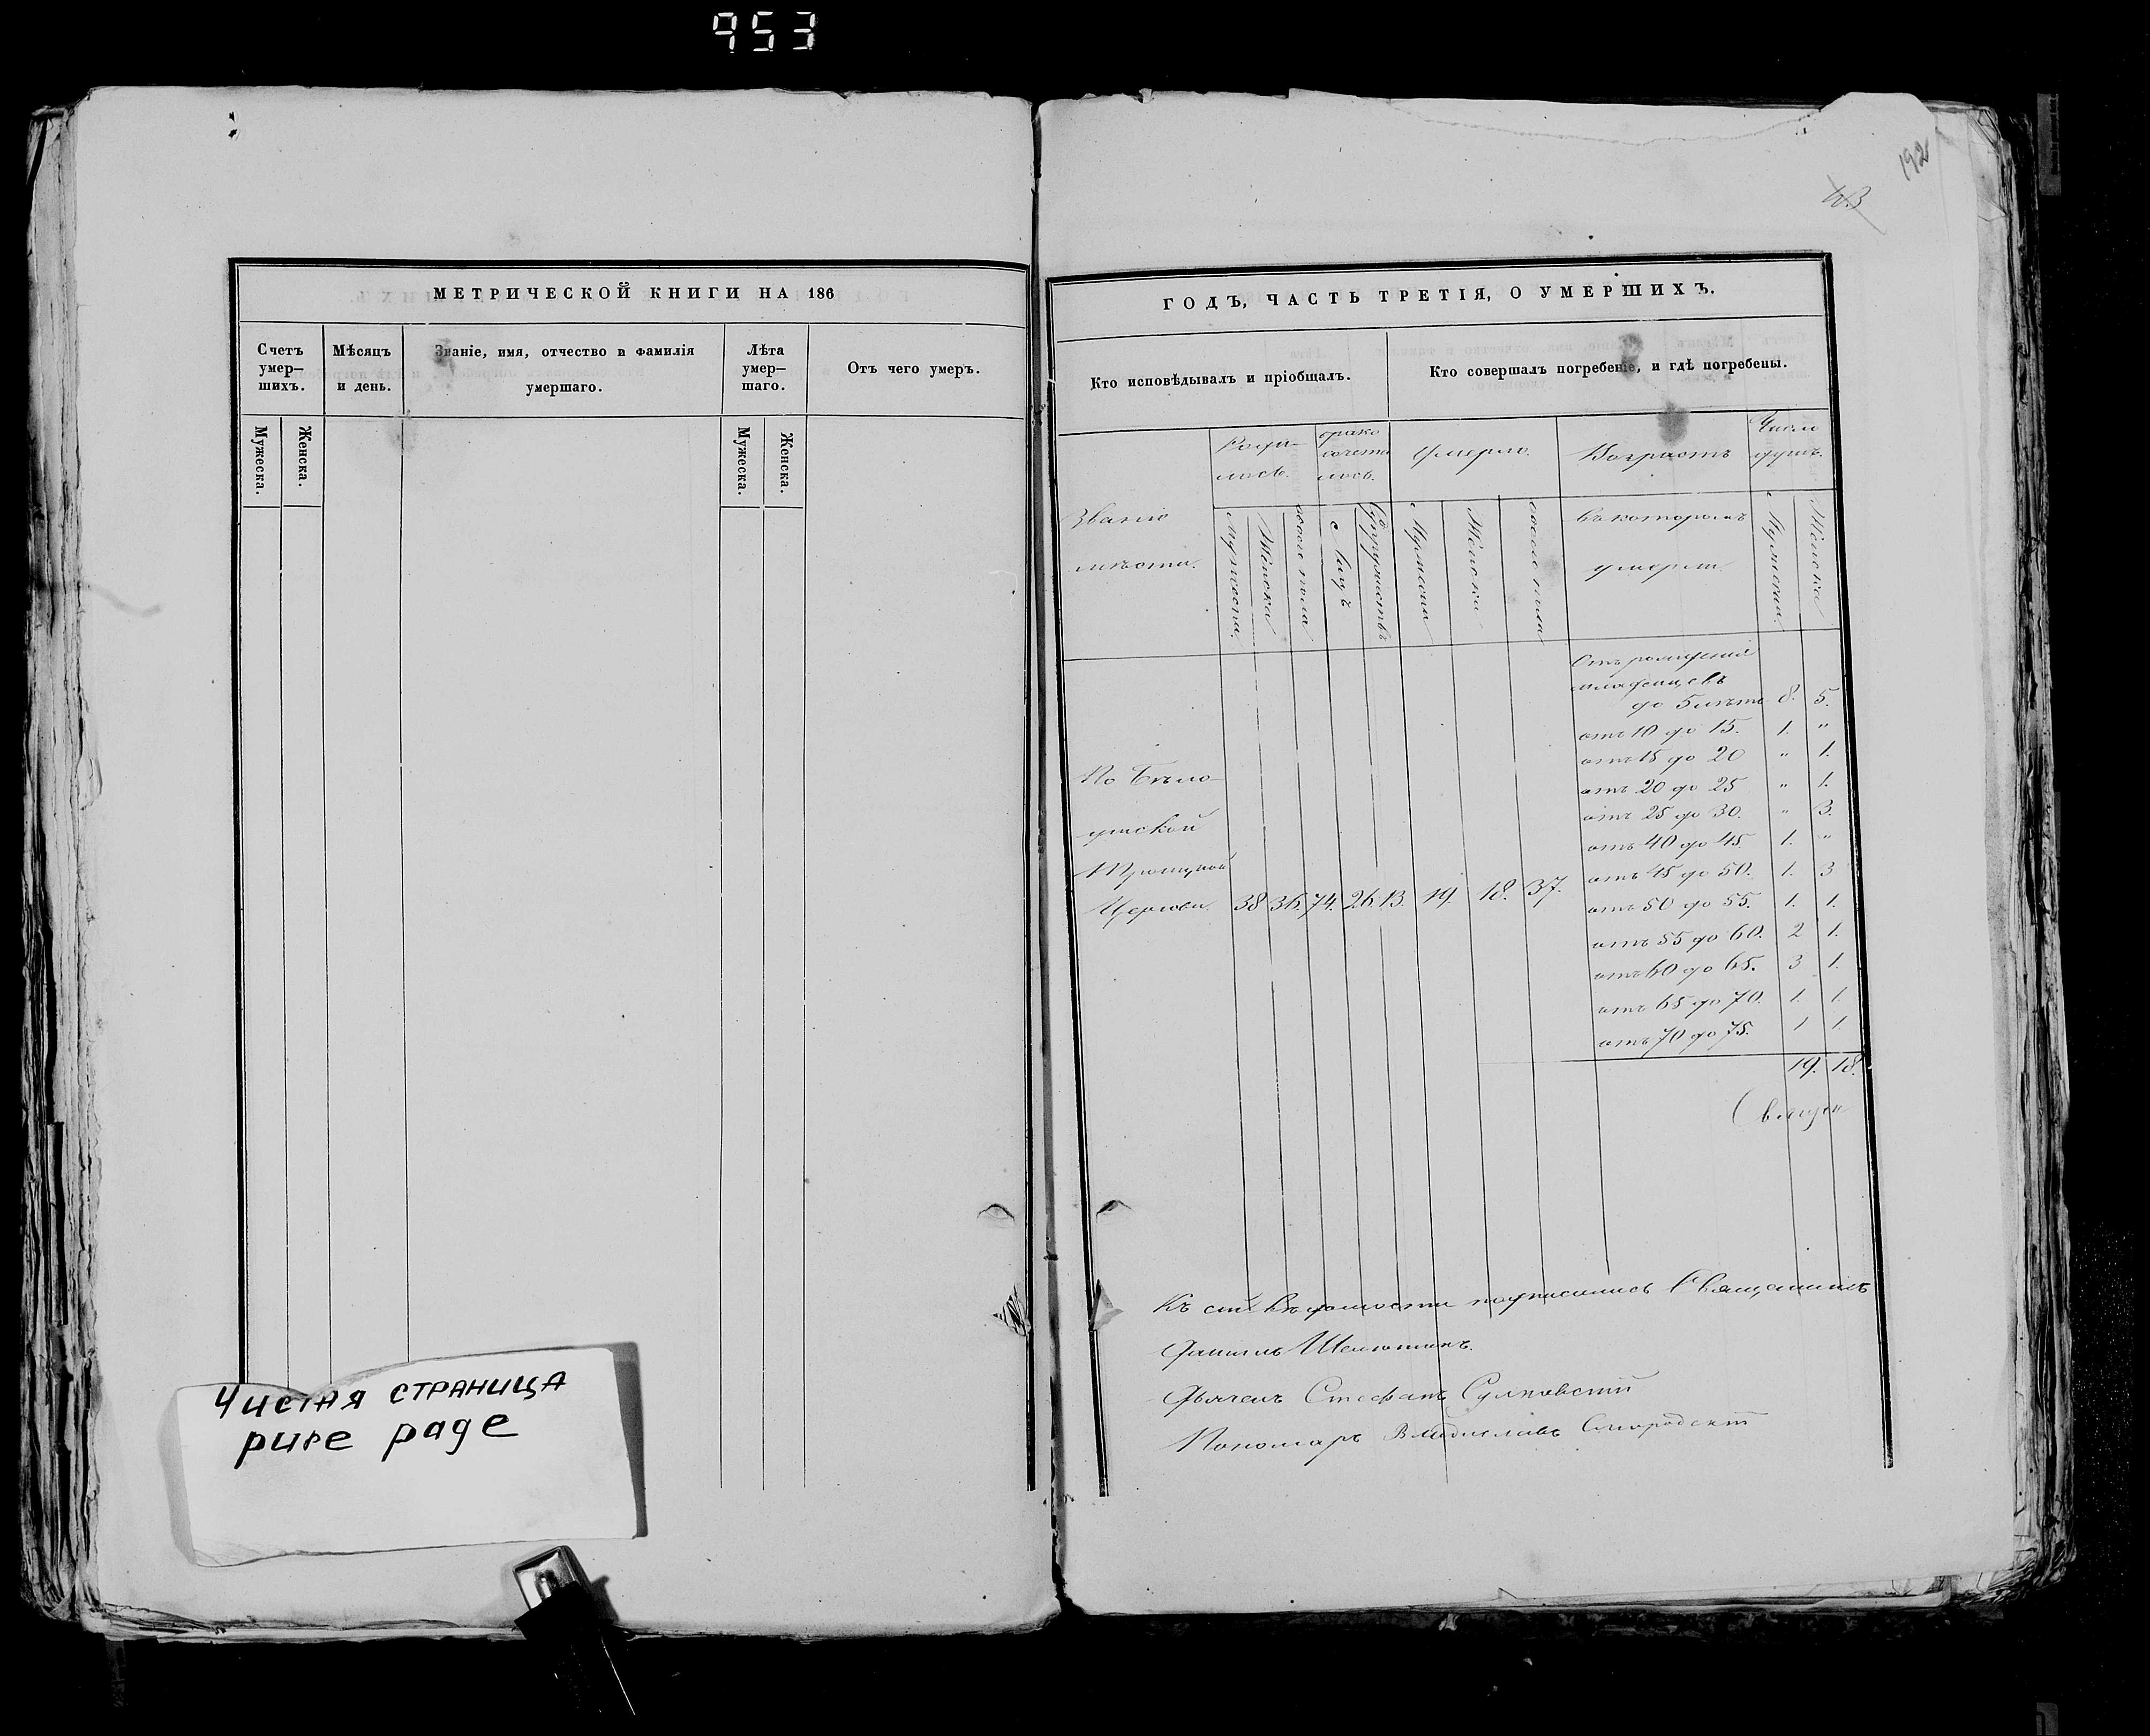 953
192
МЕТРИЧЕСКОЙ КНИГИ НА 186
Счетъ умер-
шихъ.
Мѣсяцъ
и день.
Званіе, имя, отчество и фамилія
умершаго.
Лѣта
умер-
шаго.
Отъ чего умеръ.
Мужеска.
Женска.
Мужеска.
Женска.
Чистая страница
pure page
ГОДЪ, ЧАСТЬ ТРЕТІЯ, О УМЕРШИХЪ.
Кто исповѣдывалъ и пріобщалъ.
Кто совершалъ погребеніе, и гдѣ погребены.
Званіе
мѣста.
Роди-
лось.
брако
сочета
лось.
Умерло.
Возрастъ
въ которомъ
умерли.
Число
душъ.
Мужеска.
Женска
обоего пола
Супружествъ
Мужеска
Женска
обоего пола
Мужеска.
Женска
По Бѣло-
Троицкой
Церкви. 38 36. 74. 26. 13. 19. 18. 37.
Отъ рожденія
младенцевъ
до 5 лѣтъ 8. 5.
отъ 10 до 15. 1. "
отъ 15 до 20 " 1.
отъ 20 до 25 " 1.
отъ 25 до 30. " 3.
отъ 40 до 45. 1. "
отъ 45 до 50. 1. 3
отъ 50 до 55. 1. 1.
отъ 55 до 60. 2 1.
отъ 60 до 65. 3 1.
отъ 65 до 70. 1. 1.
отъ 70 до 75. 1 1
19. 18.
Къ сей вѣдомости подписались Священникъ
Даніилъ
Дьячекъ Стефанъ
Пономарь Владиславъ